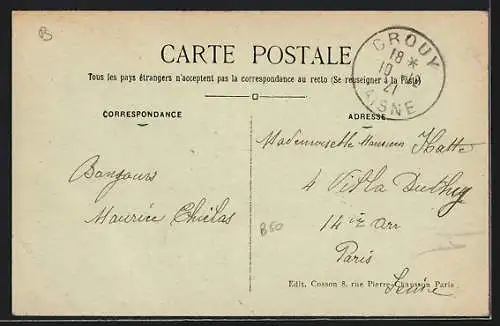 B
CARTE POSTALE
Tous les pays étrangers n'acceptent pas la correspondance au recto (Se renseigner à la Poste)
CROUY
18 *
10
21
AISNE
CORRESPONDANCE
ADRESSE
Mademoiselle
4 Villa Duthy
14 iè Arr
Paris
Seine
Bonjours
Maurice
B50
Edit. Cosson 8, rue Pierre-Chausson Paris